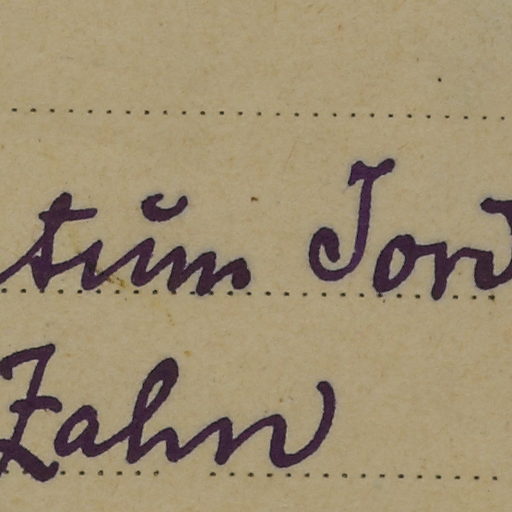 tum Jord
Zahn